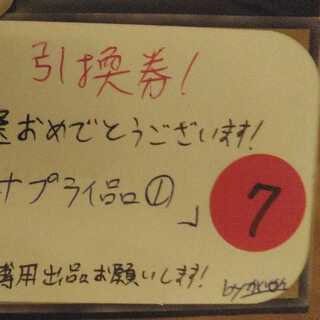 引換券!
選おめでとうございます!
サプライ品①」
7
専用出品お願いします!
by